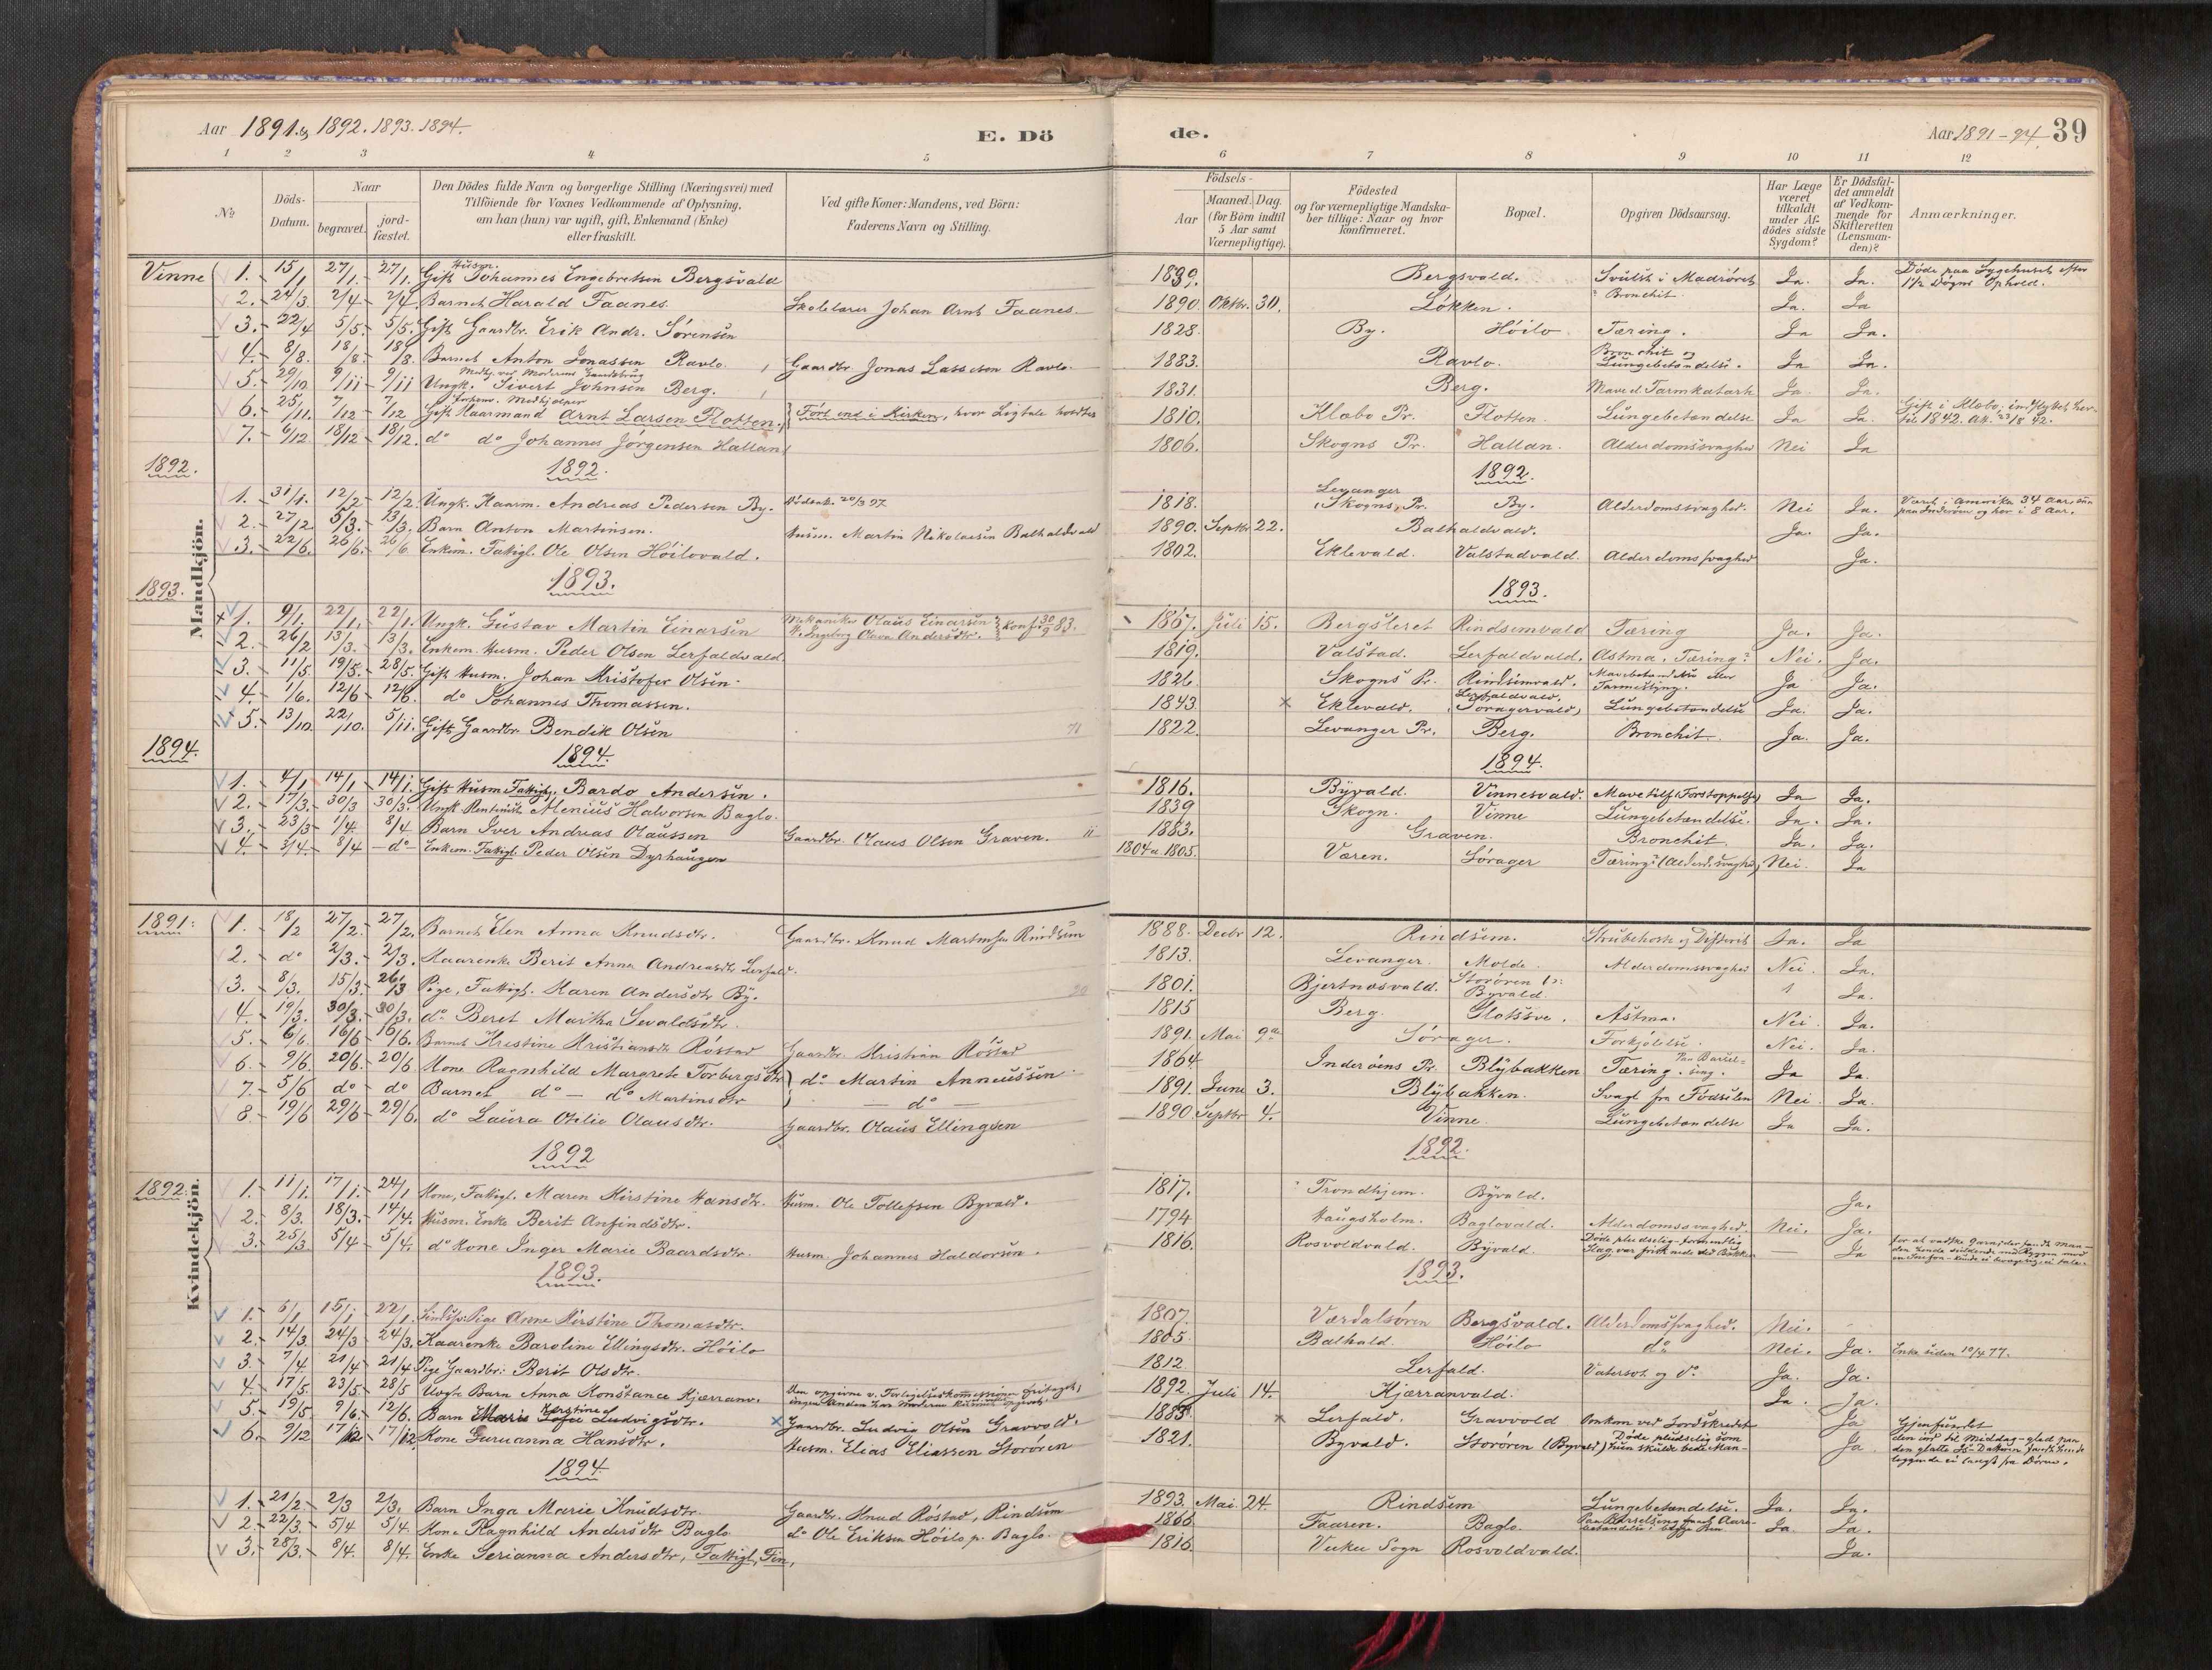 Aar 1891 & 1892. 1893. 1894. E. Dö de. Aar 1891-94. 39
1 2 3 4 5 6 7 8 9 10 11 12
No
Döds-Datum.
Naar
begravet.
jord-fæstet.
Den Dödes fulde Navn og borgerlige Stilling (Næringsvei) med
Tilföiende for Voxnes Vedkommende af Oplysning,
om han (hun) var ugift, gift, Enkemand (Enke)
eller fraskilt.
Ved gifte Koner: Mandens, ved Börn:
Faderens Navn og Stilling.
Födsels-
Aar
Maaned. Dag.
(for Börn indtil
5 Aar samt
Værnepligtige).
Födested
og for værnepligtige Mandska-
ber tillige: Naar og hvor
konfirmeret.
Bopæl.
Opgiven Dödsaarsag.
Har Læge
været
tilkaldt
under Af-
dödes sidste
Sygdom?
Er Dödsfal-
det anmeldt
af Vedkom-
mende for
Skifteretten
(Lensman-
den)?
Anmærkninger.
Mandkjön.
Vinne 1. 15/1 27/1. 27/1. Gift Husm. Johannes Engebretsen Bergsvald 1839. Bergsvald. Svülst i Madröret Ja. Ja. Døde paa Sygehuset efter
1 1/2 Døgns Ophold.
2. 24/3 2/4 2/4 Barnet Harald Faanes. Skolelærer Johan Arnt Faanes. 1890 Oktbr. 30. Løkken. Bronchit Ja. Ja
3. 22/4 5/5 5/5. Gift Gaardbr. Erik Andr. Sörensen 1828. By. Höilo. Tæring. Ja Ja.
4. 8/8. 18/8. 18/8. Barnet Anton Jonassen Ravlo. Gaardbr. Jonas Lassesen Ravlo. 1883. Ravlo. Bronchit og
Lungebetændelse. Ja Ja.
5. 29/10 9/11 9/11 Ungk. Sivert Johnsen Berg. Medhj. ved Moderens Gaardsbrug 1831. Berg. Mave & Tarmkatarh Ja. Ja.
6. 25/11. 7/12 7/12 Gift Kaarmand Arnt Larsen Flotten. forhenv. Medhjælper Fört ind i Kirken, hvor Ligtale holdtes 1810. Klæbo Pr. Flotten. Lungebetændelse Ja Ja. Gift i Klæbo: indflyttet her-
til 1842. Att. 23/8 42.
7. 6/12 18/12 18/12. do do Johannes Jörgensen Hallan 1806. Skogns Pr. Hallan. Alderdomssvaghed Nei Ja
1892. 1892. 1892.
1. 31/1. 12/2 12/2. Ungk. Kaarm. Andreas Pedersen By. 20/3 97 1818. Levanger
Skogns Pr. By. Alderdomssvaghed. Nei Ja. Været i Amerika 34 Aar, saa
paa Inderøen og her i 8 Aar.
2. 27/2 5/3. 13/3. Barn Anton Martinsen. Husm. Martin Nikolaisen Balhaldvald 1890. Septbr 22. Balhaldvald. Ja. Ja.
3. 22/6. 26/6. 26/6 Enkem. Fattigl. Ole Olsen Höilovald. 1802. Eklevald. Valstadvald. Alderdomssvaghed Ja.
1893. 1893. 1893.
1. 9/1. 22/1. 22/1. Ungk. Gustav Martin Einarsen Mekaniker Olaus Einarsen
& Ingeborg Olava Andersdtr. Konf. 30/9 83. 1867. Juli 15. Bergsleret Rindsemvald Tæring Ja. Ja.
2. 26/2 13/3. 13/3. Enkem. Husm. Peder Olsen Lerfaldvald 1819. Valstad. Lerfaldvald. Astma. Tæring? Nei. Ja.
3. 11/5. 19/5. 28/5. Gift Husm. Johan Kristofer Olsen. 1826. Skogns Pr. Rindsemvald. Ja Ja.
4. 1/6. 12/6 12/6. do Johannes Thomassen. 1843 Eklevald. Lerfaldvald.
(Söragervald) Lungebetændelse Ja. Ja.
5. 13/10. 22/10. 5/11. Gift Gaardbr. Bendik Olsen 1822. Levanger Pr. Berg. Bronchit. Ja. Ja.
1894. 1894. 1894.
1. 4/1 14/1 14/1. Gift Husm. Fattigl. Bardo Andersen. 1816. Byvald. Vinnesvald. Ja Ja.
2. 17/3. 30/3 30/3. Ungk. Rentenist Menius Halvorsen Baglo. 1839 Skogn. Vinne Lungebetændelse. Ja. Ja.
3. 23/3 1/4. 8/4 Barn Iver Andreas Olaussen Gaardbr. Olaus Olsen Graven. 1883. Graven. Bronchit Ja. Ja.
4. 3/4. 8/4 do Enkem. Fattigl. Peder Olsen Dyrhaugen 1804 a 1805. Væren. Sörager Tæring (Alderd. svaghed) Nei. Ja
Kvindekjön.
1891: 1. 18/2 27/2. 27/2. Barnet Elen Anna Knudsdtr. Gaardbr. Knud Martinsen Rindsem 1888. Decbr 12. Rindsem. Strubehoste og Difterit Ja. Ja
2. do 2/3. 2/3. Kaarenke Berit Anna Andreasdtr Lerfald. 1813. Levanger. Molde. Alderdomssvaghed Nei. Ja.
3. 8/3. 15/3. 26/3 Pige, Fattigl. Maren Andersdtr By. 1801. Bjertnæsvald. Storören
Byvald. Ja.
4. 19/3. 30/3. 30/3. do Beret Martha Sevaldsdtr. 1815 Berg. Astma. Nei Ja.
5. 6/6. 16/6 16/6. Barnet Kristine Kristiansdtr Röstad Gaardbr. Kristian Röstad 1891. Mai 9de Sörager. Forkjölelse. Nei. Ja.
6. 9/6. 20/6 20/6 Kone Ragnhild Margrete Torbergsdtr do Martin Anneussen 1864 Inderöens Pr. Blybakken Tæring. Paa Barsel-
seng. Ja Ja.
7. 5/6 do do Barnet do — do Martinsdtr — do — 1891. June 3. Blybakken. Svagl. fra Födselen Nei. Ja.
8. 19/6 29/6 29/6. do Laura Otilie Olausdtr. Gaardbr. Olaus Ellingsen 1890. Septbr 4. Vinne Lungebetændelse Ja Ja.
1892 1892.
1892. 1. 11/1. 17/1. 24/1 Kone, Fattigl. Maren Kirstine Hansdtr. Husm. Ole Tollefsen Byvald. 1817. Trondhjem. Byvald. Ja.
2. 8/3. 18/3. 14/4. Husm. Enke Berit Anfindsdtr. 1794 Haugsholm. Baglovald. Alderdomssvaghed. Nei. Ja.
3. 25/3 5/4 5/4. do Kone Inger Marie Baardsdtr. Husm. Johannes Haldorsen. 1816. Rosvoldvald. Byvald. Döde pludselig - formentlig
Slag, var frisk — Ja
1893. 1893.
1. 6/1 15/1 22/1. Pige Anne Kirstine Thomasdtr. 1807. Værdalsören Bergsvald. Alderdomssvaghed. Nei.
2. 14/3 24/3 24/3. Kaarenke Baroline Ellingsdtr. Höilo 1805. Balhald. Höilo do Nei. Ja. Enke siden 10/4 77.
3. 7/4 21/4 21/4 Pige Gaardbr: Berit Olsdtr. 1812 Lerfald. Vatersot og do Ja. Ja.
4. 17/5. 23/5. 28/5 Uægte Barn Anna Konstance Kjærranv. 1892. Juli 14. Kjærranvald. Ja. Ja.
5. 19/5 9/6. 12/6. Barn Marie Kerstine Ludvigsdtr. Gaardbr. Ludvig Olsen Gravvold. 1885. Lerfald. Gravvold Omkom ved Jordskredet Ja Gjenfundet
6. 9/12 17/12 17/12 Kone Guruanna Hansdtr. Husm. Elias Eliassen Storören 1821. Byvald. Storören (Byvald) Döde pludselig som
hun skulde bede Man-
Ja den ind til Middag - glad paa
1894
1. 21/2. 2/3 2/3. Barn Inga Marie Knudsdtr. Gaardbr. Knud Röstad, Rindsem 1893. Mai. 24. Rindsem Lungebetændelse. Ja. Ja.
2. 22/3. 5/4 5/4. Kone Ragnhild Andersdtr Baglo do Ole Eriksen Höilo p. Baglo. 1866. Faaren. Baglo. Paa Barselseng Ja. Ja.
3. 28/3. 8/4. 8/4. Enke Serianna Andersdtr, Fattigl, Fin, 1816. Vuku Sogn Rosvoldvald. Ja.